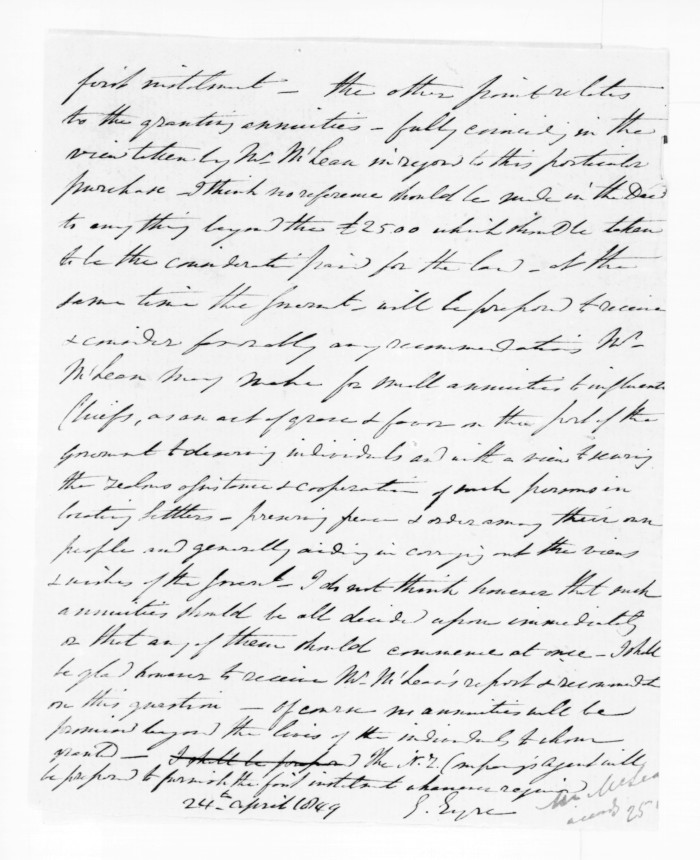 first instalment – the other point relates
to the granting annuities – fully coinciding in the
view taken by Mr McLean in regard to this particular
purchase – I think no reference should be made in the Deed
to anything beyond the £2500 which should be taken
to be the consideration paid for the land – at the
same time the Governt – will be prepared to receive
& consider favorably any recommendations Mr
McLean may make for small annuities to influential
Chiefs, as an act of grace & favor on the part of the
Government to deserving individuals and with a view to securing
the zealous assistance & cooperation of such persons in
locating Settlers – preserving peace & order among their own
people and generally aiding in carrying out the views
& wishes of the Governt – I do not think however that such
annuities should be all decided upon immediately
or that any of them should commence at once – I shall
be glad however to receive Mr McLean's report & recommendation
on this question – of course no annuities will be
promised beyond the lives of the individuals to whom
granted – I shall be prepared The N.Z. Company's Agent will
be prepared to furnish the first instalment whenever required
24th April 1849 E. Eyre
Mr McLea
25